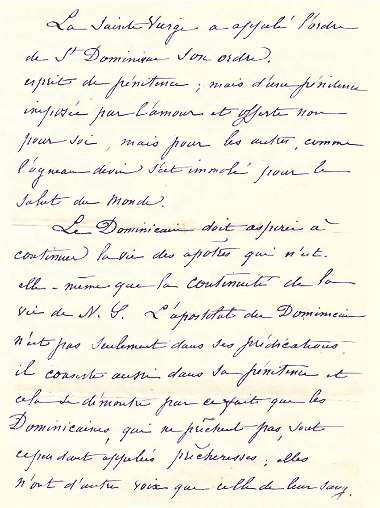 La Sainte Vierge a appelé l'ordre
de St Dominique son ordre.
esprit de pénitence ; mais d'une pénitence
imposée par l'amour et offerte non
pour soi, mais pour les autres, comme
l'agneau divin s'est immolé pour le
salut du monde.
Le Dominicain doit aspirer à
continuer la vie des apôtres qui n'est
elle-même que la continuité de la
vie de N. S. L'apostolat du Dominicain
n'est pas seulement dans ses prédications,
il consiste aussi dans sa pénitence et
cela se démontre par ce fait que les
Dominicaines, qui ne prêchent pas, sont
cependant appelées prêcheresses ; elles
n'ont d'autre voix que celle de leur sang.